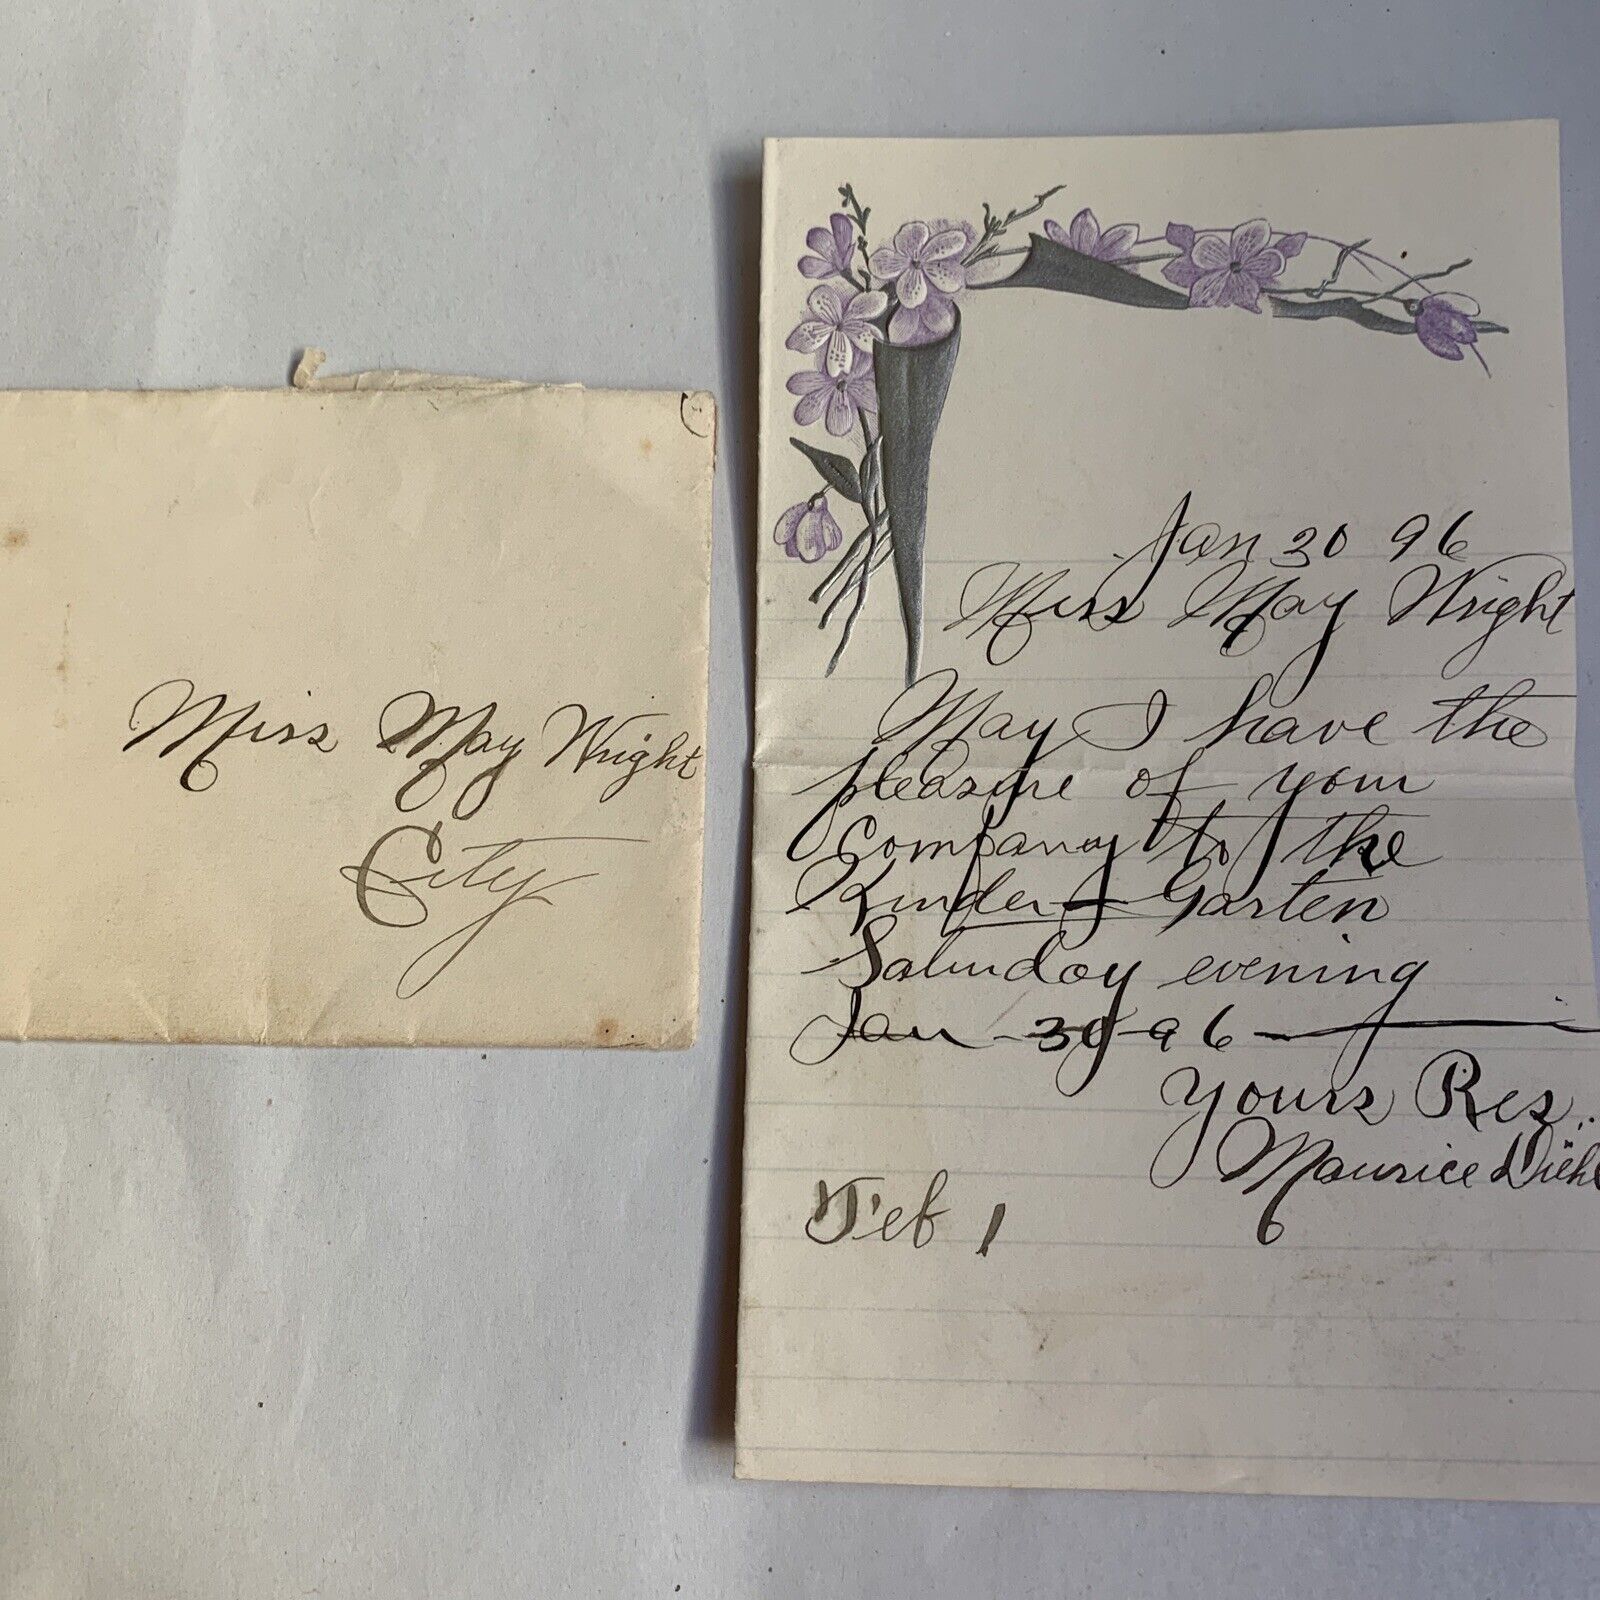 Miss May Wright
City
Jan 30 96
Miss May Wright
May I have the
pleasure of your
Company to the
Kinder-Garten
Saturday evening
Jan 30 96
Yours Res.
Maurice Diehl
Feb 1